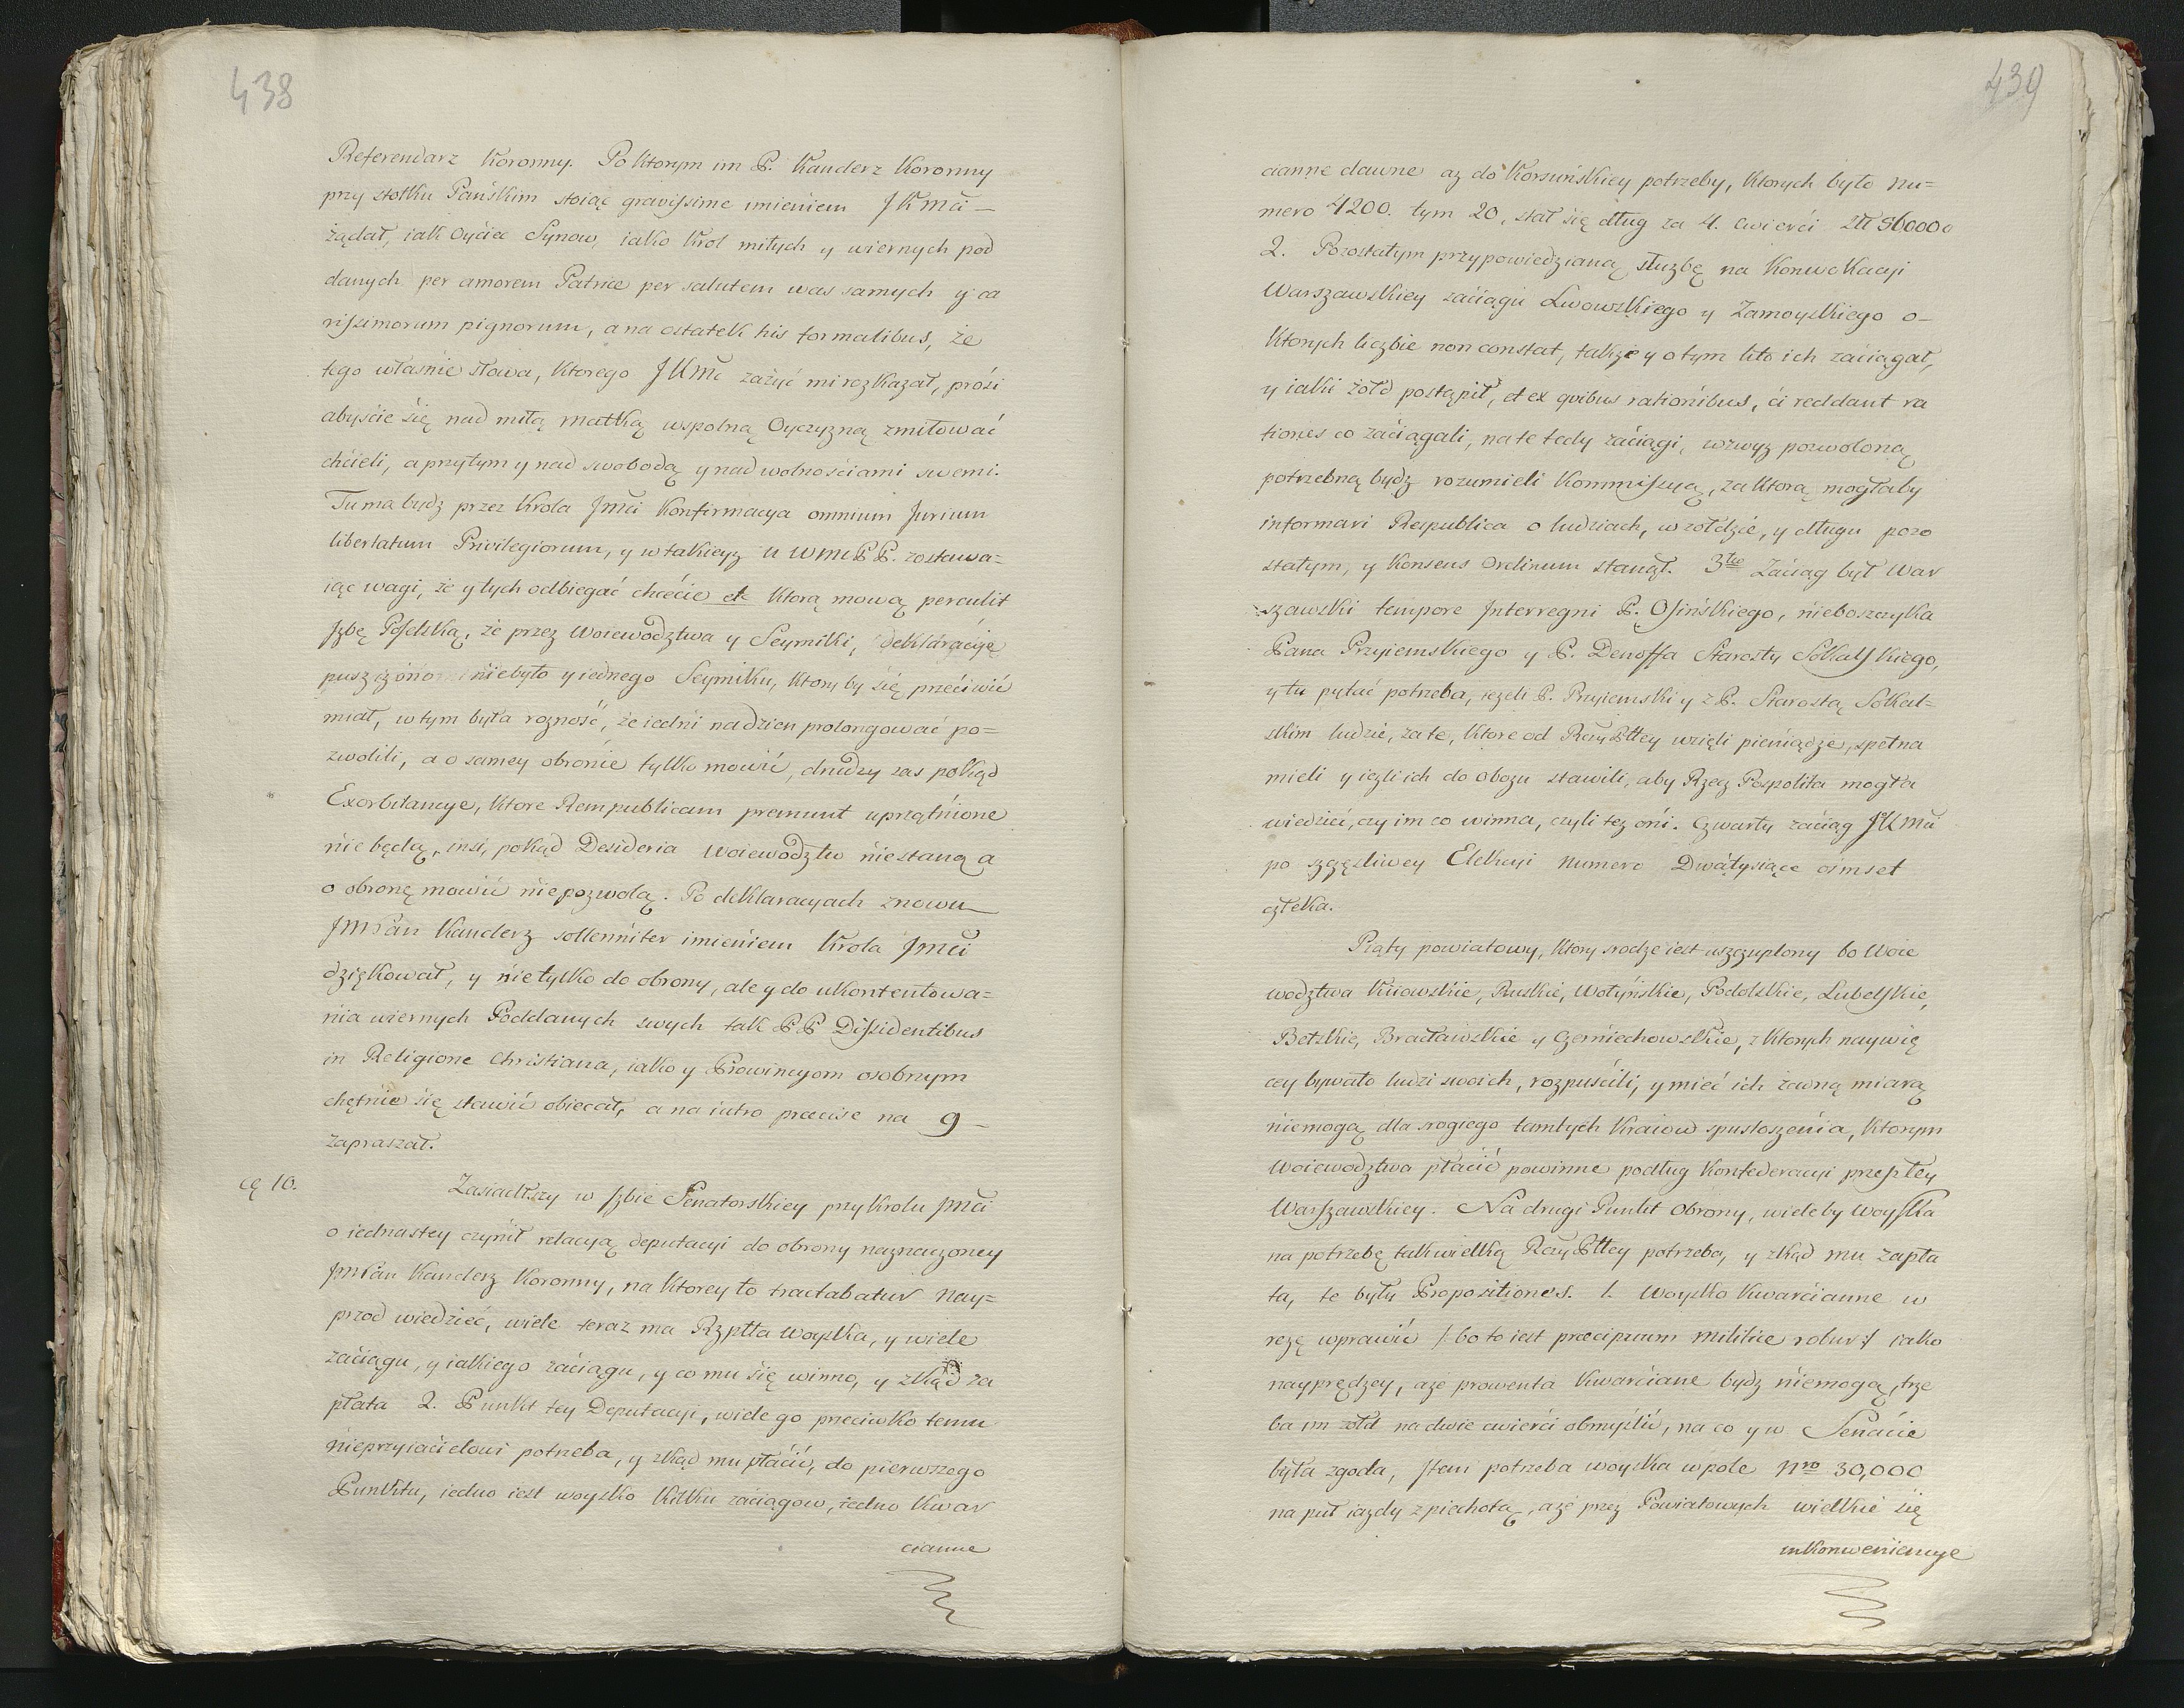 438
Referendarz Koronny. Po Ktorym im P. Kanclerz Koronny
przy stołku Pańskim stoiąc gravissime imieniem JKMći —
żądał, iak Oyćiec Synow, iako Krol miłych y wiernych pod
danych per amorem Patriæ per salutem was samych y ca
rissimorum pignorum, a na ostatek his formalibus, że
tego własnie słowa, Ktorego JKMć zażyć mi rozkazał, prośi
abyśćie śię nad miłą Matką wspolną Oyczyzną zmiłować
chćieli, a przytym y nad swobodą y nad wolnośćiami swemi.
Tu ma bydz przez Krola Jmći Konfirmacya omnium Jurium
libertatum Privilegiorum, y w takieyz u WMPP. zostawa=
iąc wagi, że y tych odbiegać chcećie etc Ktorą mową perculit
Jzbę Poselską, że przez Woiewodztwa y Seymiki, deklaracye
puszczono niebyło y iednego Seymiku, Ktory by śię przećiwić
miał, w tym była rozność, że iedni nadzien prolongować po=
zwolili, a o samey obronie tylko mowić, drudzy zas pokąd
Exorbitancye, Ktore Rempublicam premunt uprzątnione
nie będą, insi, pokąd Desideria Woiewodztw niestaną a
o obronę mowić niepozwolą. Po deklaracyach znowu
JmPan Kanclerz sollenniter imieniem Krola Jmći
dziękował, y nietylko do obrony, ale y do ukontentowa=
nia wiernych Poddanych swych tak PP Dissidentibus
in Religione Christiana, iako y Prowincyom osobnym
chętnie się stawić obiecał, a na iutro præcise na 9 —
zapraszał.
cą 10. Zasiadłszy w Jzbie Senatorskiey przy Krolu Jmći
o iednastey czynił relacyą deputacyi do obrony naznaczoney
JmPan Kanclerz Koronny, na Ktorey to tractabatur nay=
przod wiedzieć, wiele teraz ma Rzptta Woyska, y wiele
zaćiągu, y iakiego zaćiągu, y co mu śię winno, y zkąd za
płata 2. Punkt tey Deputacyi, wiele go przeciwko temu
nieprzyiaćielowi potrzeba, y zkąd mu płaćić, do pierwszego
Punktu, iedno iest woysko Kilku zaćiągow, iedno Kwar
cianne
439
cianne dawne az do Korsuńskiey potrzeby, Ktorych było nu=
mero 4200. tym 20, stał śię dług za 4. cwierći złł 560000
2. Pozostałym przypowiedzianą służbę na Konwokacyi
Warszawskiey zaćiągu Lwowskiego y Zamoyskiego o—
Ktorych liczbie non constat, takze y o tym kto ich zaćiągał,
y iaki żołd postąpił, et ex quibus rationibus, ći reddant ra
tiones co zaćiągali, na te tedy zaćiągi, wzwyz pozwoloną
potrzebną bydz rozumieli Kommissyą, za Ktorą mogłaby
informari Respublica o ludziach, w żołdzie, y długu pozo
stałym, y Konsens Ordinum stanął. 3tio Zaćiąg był War
szawski tempore Interregni P. Osińskiego, nieboszczyka
Pana Przyiemskiego y P. Denoffa Starosty Sokalskiego,
y tu pytać potrzeba, iezeli P. Przyiemski y z P. Starostą Sokal=
skim ludzie, za te, Ktore od RzyPttey wzięli pieniądze, spełna
mieli y iezli ich do obozu stawili, aby Rzecz Pospolita mogła
wiedzieć, czy im co winna, czyli tez oni. Czwarty zaćiąg JKMći
po szczęsliwey Elekcyi numero Dwatysiące osmset
człeka.
Piąty powiatowy, Ktory srodze iest uszczuplony bo Woie
wodztwa Kiiowskie, Ruskie, Wołyńskie, Podolskie, Lubelskie,
Bełzkie, Bracławskie y Czerniechowskie, z Ktorych naywię
cey bywało ludzi swoich, rozpuśćili, y mieć ich żadną miarą
niemogą dla srogiego tamtych Kraiow spustoszenia, Ktorym
Woiewodztwa płaćić powinne podług Konfederacyi przeszłey
Warszawskiey. Na drugi Punkt Obrony, wieleby Woyska
na potrzebę tak wielką RzyPttey potrzeba, y zkąd mu zapła
ta, te były Propositiones. 1. Woysko Kwarćianne w
rezę wprawić /: bo to iest præcipuum militiæ robur :/ iako
nayprędzey, aze prowenta Kwarćiane bydz niemogą, trze
ba im żołd na dwie cwierći obmyślić, na co y w Senaćie
była zgoda, Item potrzeba woyska w pole Nro 30,000
na puł iazdy z piechotą, aze przez Powiatowych wielkie śię
inkonweniencye